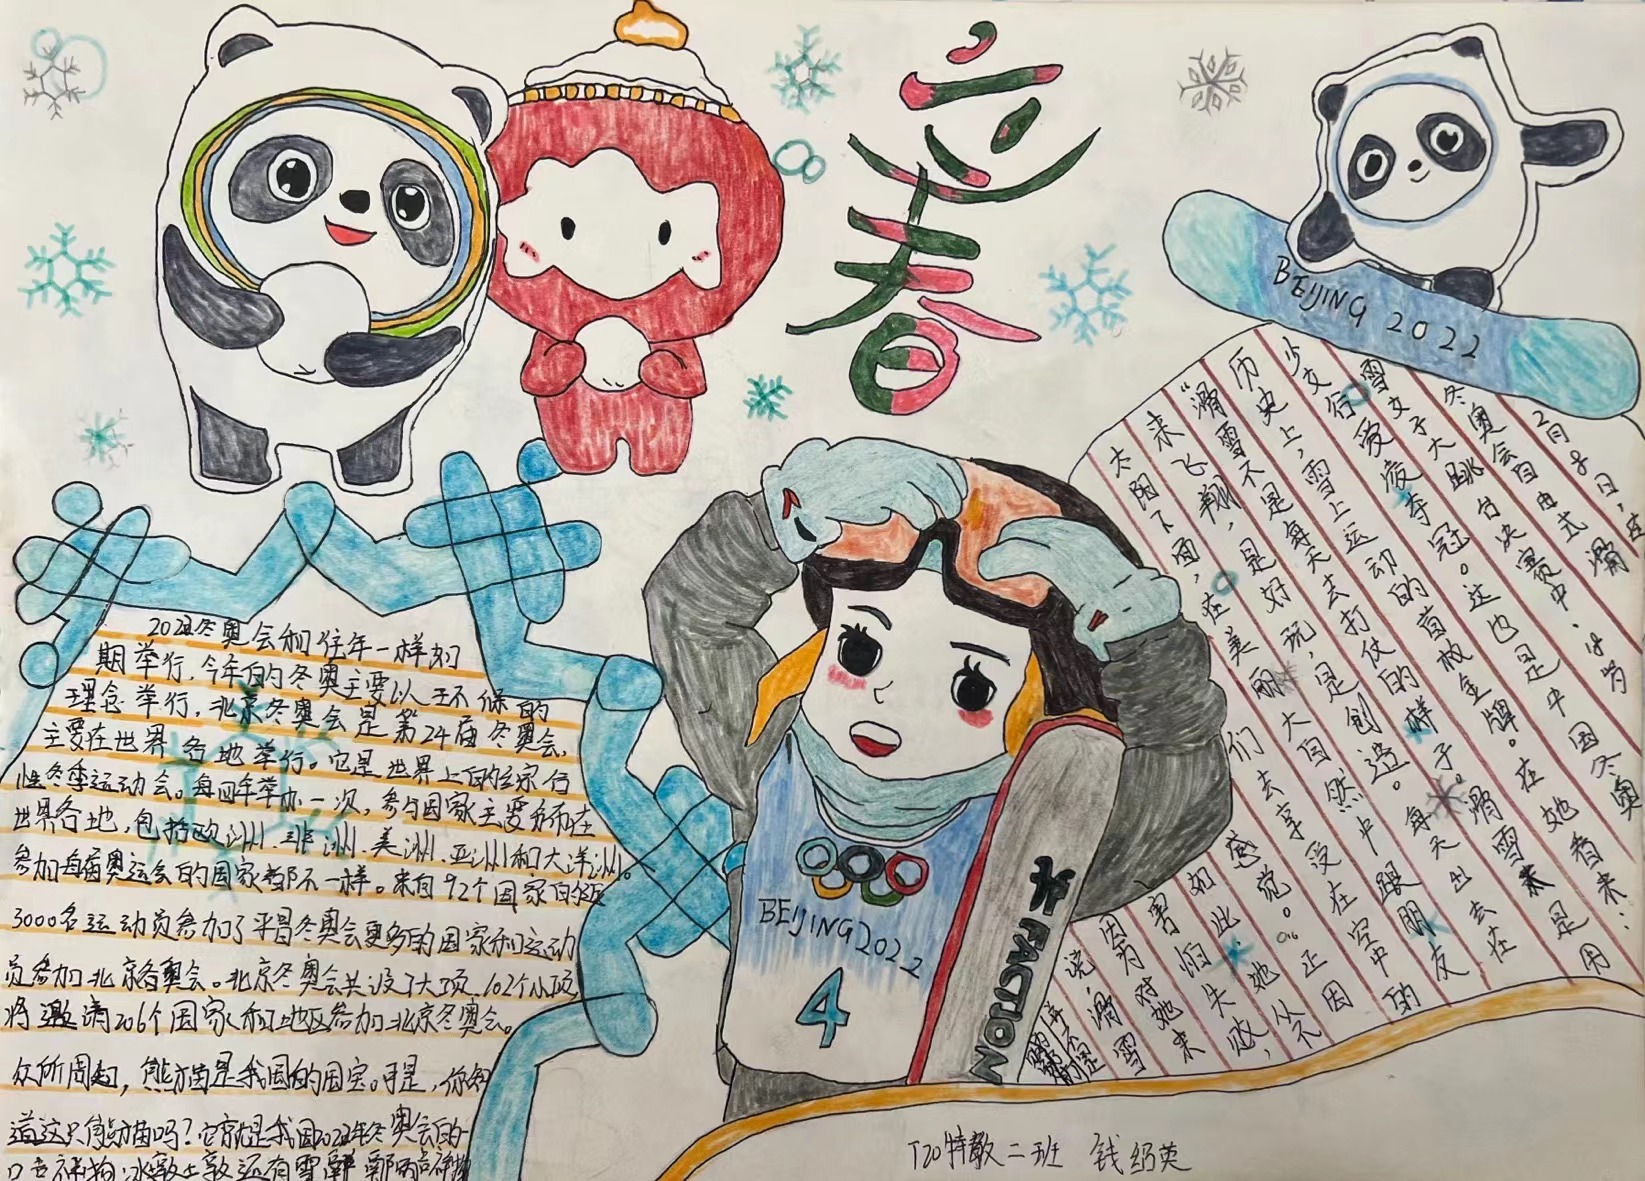 立春
BEIJING 2022
2022冬奥会和往年一样如
期举行,今年的冬奥主要以环保的
理念举行,北京冬奥会是第24届冬奥会,
主要在世界各地举行。它是世界上的综合
性冬季运动会。每四年举办一次,参与国家主要分布在
世界各地,包括欧洲、非洲、美洲、亚洲和大洋洲。
参加每届奥运会的国家都不一样。来自92个国家的
3000名运动员参加了平昌冬奥会更多的国家和运动
员参加北京冬奥会。北京冬奥会共设7大项,102个小项,
将邀请206个国家和地区参加北京冬奥会。
众所周知,熊猫是我国的国宝。可是,你知
道这只熊猫吗?它就是我国2022年冬奥会的一
只吉祥物:冰墩墩还有雪
2月8日,在
冬奥会自由式滑
雪女子大跳台决赛中,
少女谷爱凌夺冠。这也是中国冬奥
历史上,雪上运动的首枚金牌。在她看来:
“滑雪不是每天去打仗的样子。滑雪是用
来飞翔,是好玩,是创造。每天出去在
太阳下面,在美丽大自然中跟朋友
们去享受在空中的
感觉。”正因
如此,她从不
害怕失败,
因为对她来
说,滑雪
BEIJING 2022
4
FACTION
T20特教二班 钱绍英